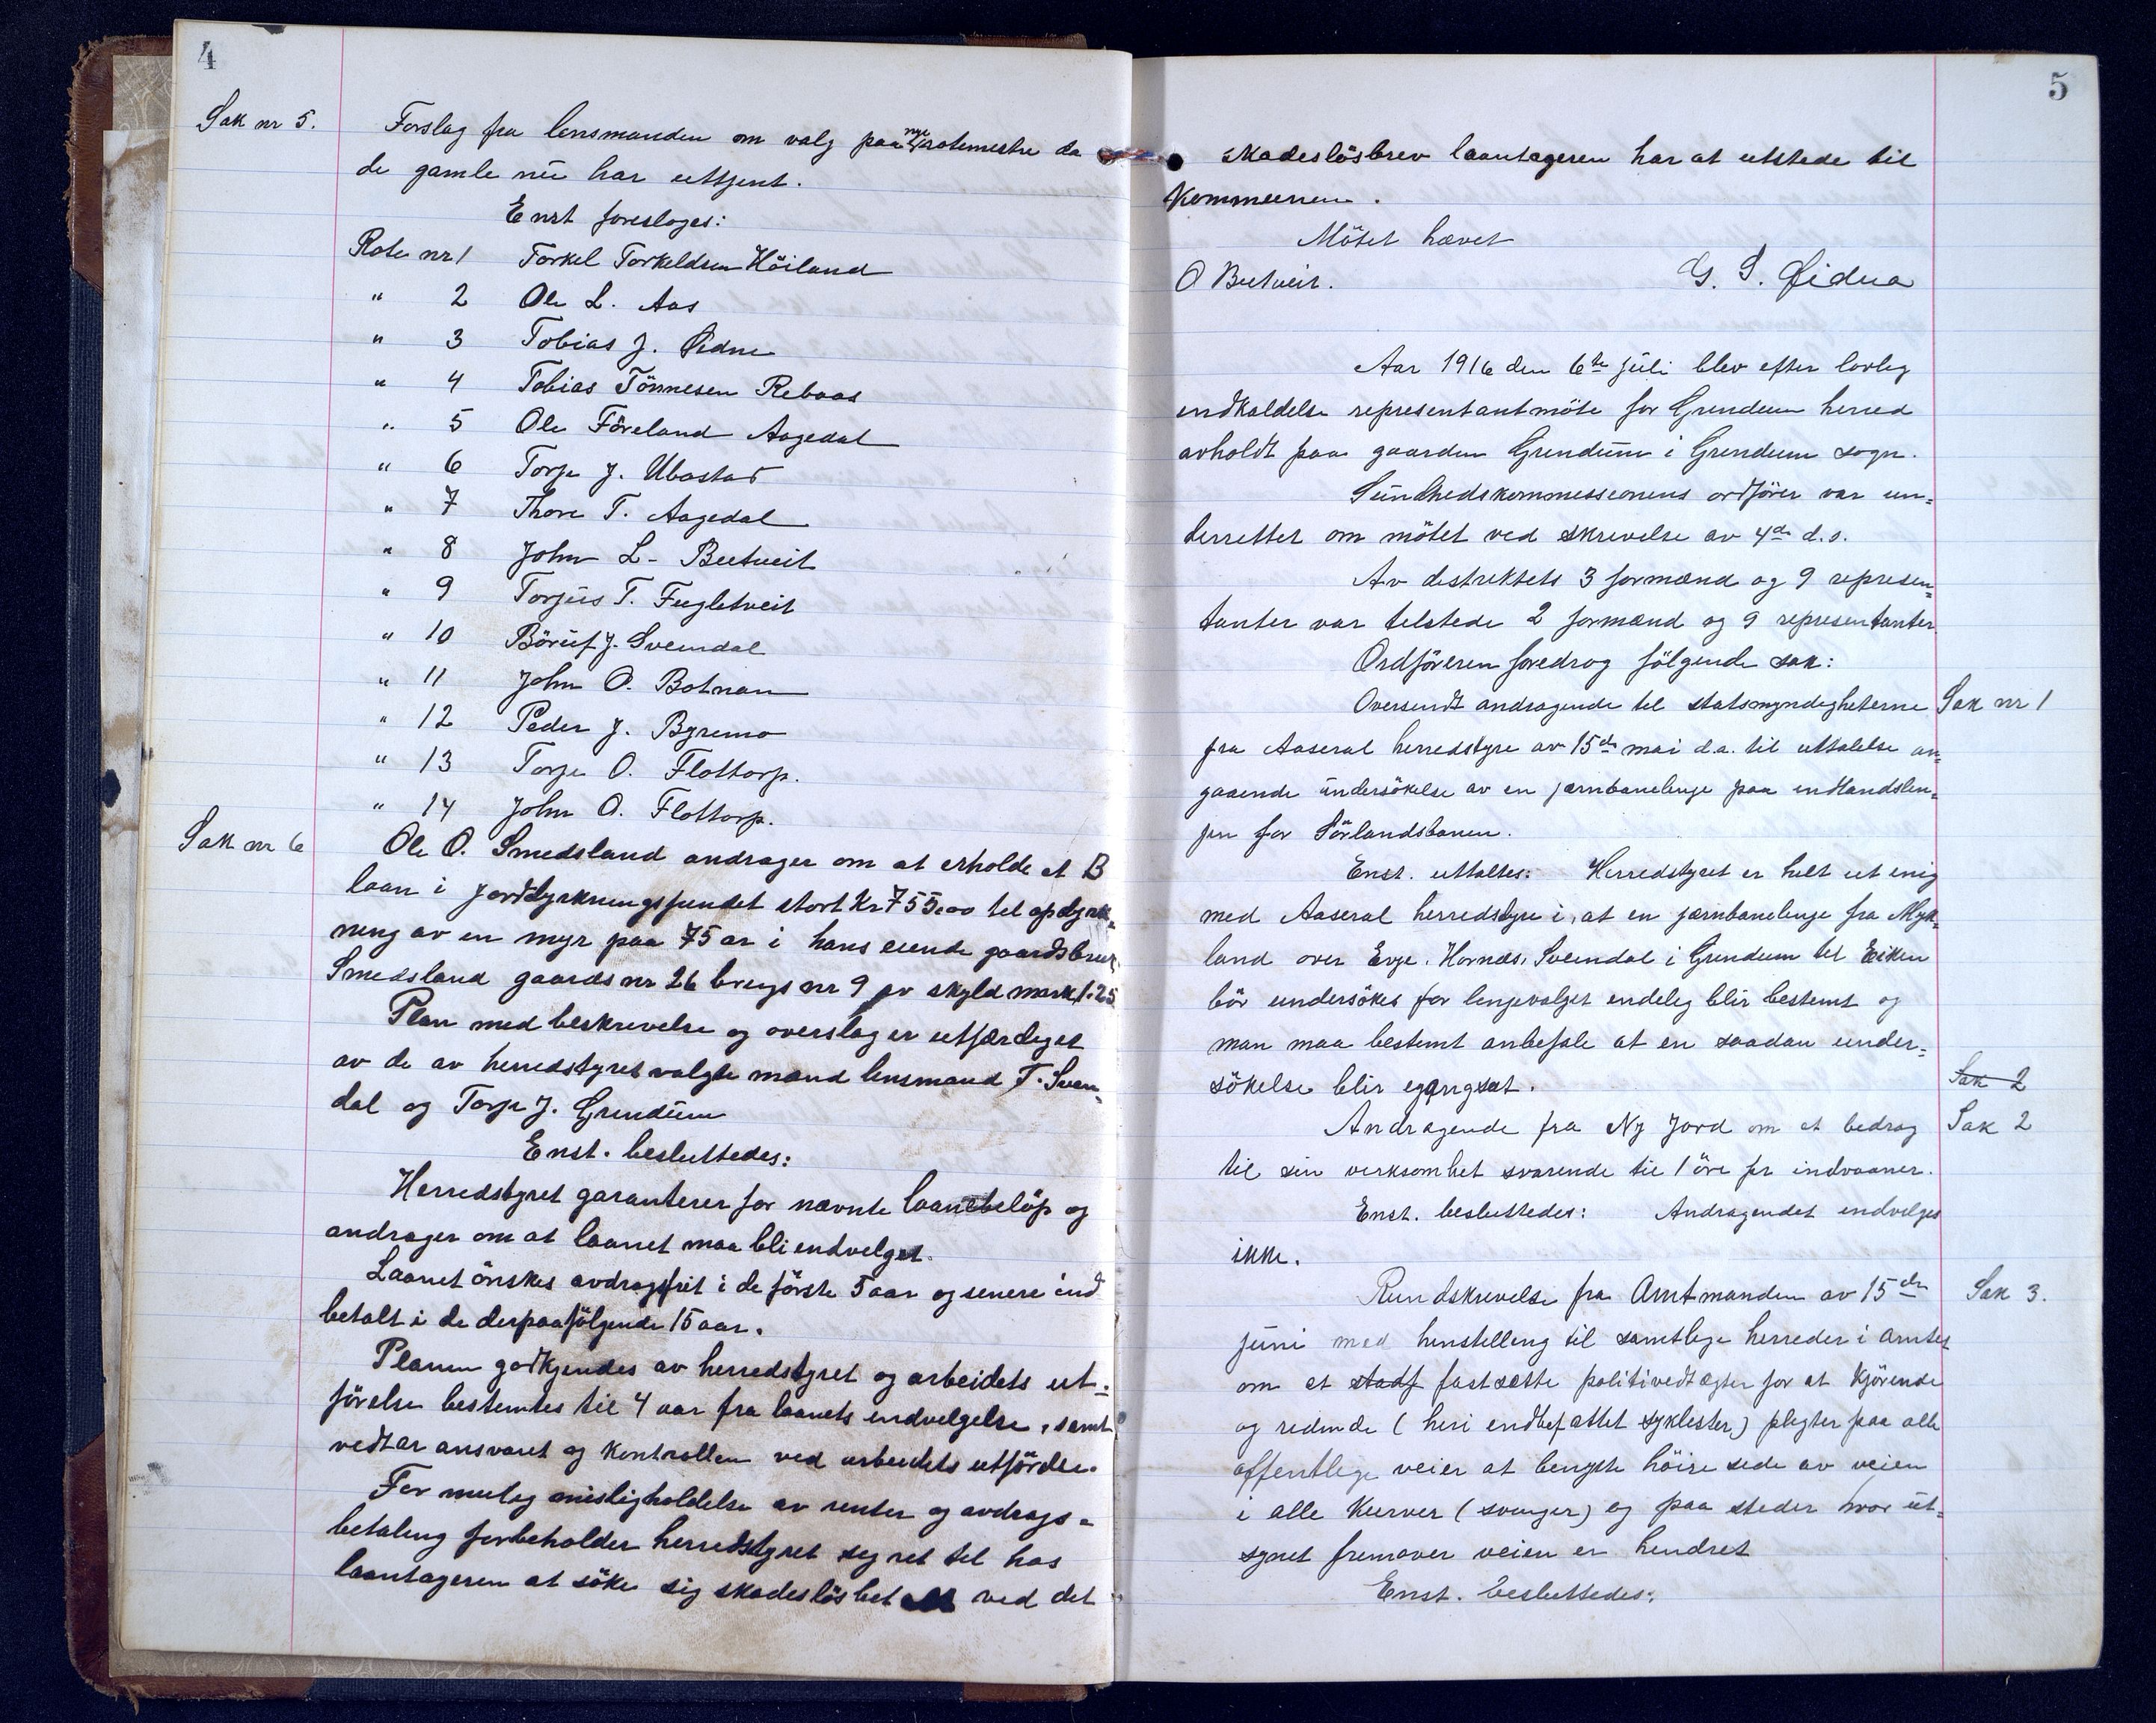 4
Sak nr 5.
Forslag fra lensmanden om valg paa nye rotemestre da
de gamle nu har uttjent.
Enst foreslages:
Rote nr 1 Torkel Torkeldsen Höiland
" 2 Ole L. Aas
" 3 Tobias J. Øidne
" 4 Tobias Tönnesen Rebaas
" 5 Ole Föreland Aagedal
" 6 Torje J. Ubostad
" 7 Thore T. Aagedal
" 8 John L. Butveit
" 9 Torjus T. Fugletveit
" 10 Böruf J. Sveindal
" 11 John O. Botnan
" 12 Peder J. Byremo
" 13 Torje O. Flottorp.
" 14 John O. Flottorp.
Sak nr 6
Ole O. Smedsland andrager om at erholde et B
laan i jorddyrkningsfundet stort Kr 755.00 til opdyrk=
ning av en myr paa 75 ar i hans eiende gaardsbruk
Smedsland gaards nr 26 brugs nr 9 av skyld mark 1.25
Plan med beskrivelse og overslag er utfærdiget
av de av herredstyret valgte mænd lensmand T. Svein=
dal og Torje J. Grundum
Enst. besluttedes:
Herredstyret garanterer for nævnte laanebelöp og
andrager om at laanet maa bli indvilget.
Laanet önskes avdragsfrit i de förste 5 aar og senere ind
betalt i de derpaafölgende 15 aar.
Planen godkjendes av herredstyret og arbeidets ut=
förelse bestemtes til 4 aar fra laanets indvilgelse, samt
vedtar ansvaret og kontrollen ved arbeidets utförelse.
For mulig misligholdelse av renter og avdrags=
betaling forbeholder herredstyret seg ret til hos
laantageren at söke sig skadeslösbet ved det
5
skadeslösbrev laantageren har at utstede til
Kommunen.
Mötet hævet
O Butveit. G. S. Øidna
Aar 1916 den 6te juli blev efter lovlig
indkaldelse representantmöte for Grundum herred
avholdt paa gaarden Grundum i Grundum sogn.
Sundhedskommissionens ordförer var un=
derrettet om mötet ved skrivelse av 4de d.s.
Av distriktets 3 formænd og 9 represen=
tanter var tilstede 2 formænd og 9 representanter.
Ordföreren foredrog fölgende sak:
Sak nr 1
Oversendt andragende til statsmyndigheterne
fra Aaseral herredstyre av 15de mai d.a. til uttalelse an=
gaaende undersökelse av en jernbanelinje paa indlandslin=
jen for Sörlandsbanen.
Enst. uttaltes: Herredstyret er helt ut enig
med Aaseral herredstyre i, at en jærnbanelinje fra Myk=
land over Evje. Hornæs, Sveindal i Grundum til Eiken
bör undersökes for linjevalget endelig blir bestemt og
man maa bestemt anbefale at en saadan under=
sökelse blir igangsat.
Sak 2
Sak 2
Andragende fra Ny Jord om et bedrag
til sin verksomhet svarende til 1 öre pr indvaaner.
Enst. besluttedes: Andragendet indvilges
ikke.
Sak 3.
Rundskrivelse fra Amtmanden av 15de
juni med henstilling til samtlige herreder i amtet
om at stadf fastsætte politivedtægter for at kjörende
og ridende (heri indbefattet syklister) pligter paa alle
offentlige veier at benytte höire side av veien
i alle kurver (svinger) og paa steder hvor ut=
synet fremover veien er hindret
Enst. besluttedes: